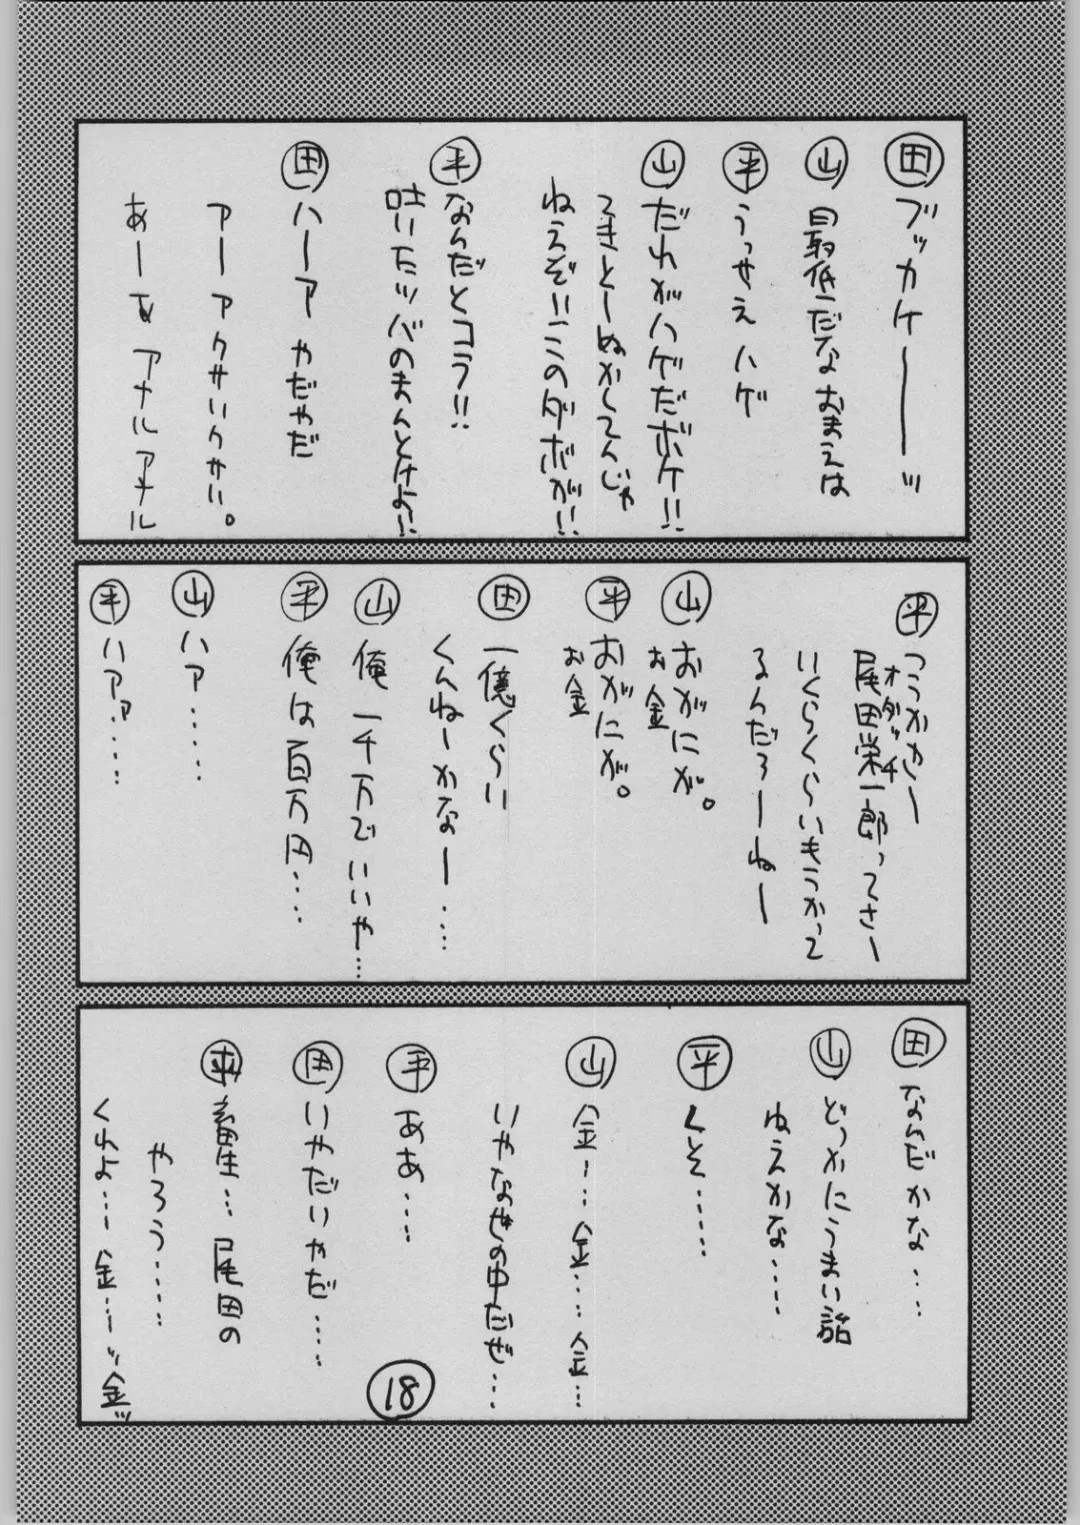 田 ブッカケーーーッ
山 最低だなおまえは
平 うっせえハゲ
山 だれがハゲだボケ!!
てきとーぬかしてんじゃ
ねえぞいこのダボが!!
平 なんだとコラ!!
吐いたツバのまんとけよ!!
田 ハーア やだやだ
アー アクサいクサい。
あーあ アナル アナル
平 つうかさー
尾田栄一郎ってさー
オダッチ
いくらくらいもうかって
るんだろーねー
山 おがにが。
お金
平 おがにが。
お金
田 一億くらい
くんねーかなー……
山 俺 一千万でいいや…
平 俺は百万円……
山 ハア……
平 ハアァ……
田 なんだかな……
山 どっかにうまい話
ねえかな……
平 くそ……
山 金……金……金…
いやなせの中だぜ…
平 ああ……
田 いやだいやだ……
平 畜生… 尾田の
やろう……
くれよ……金……ッ金ッ
18